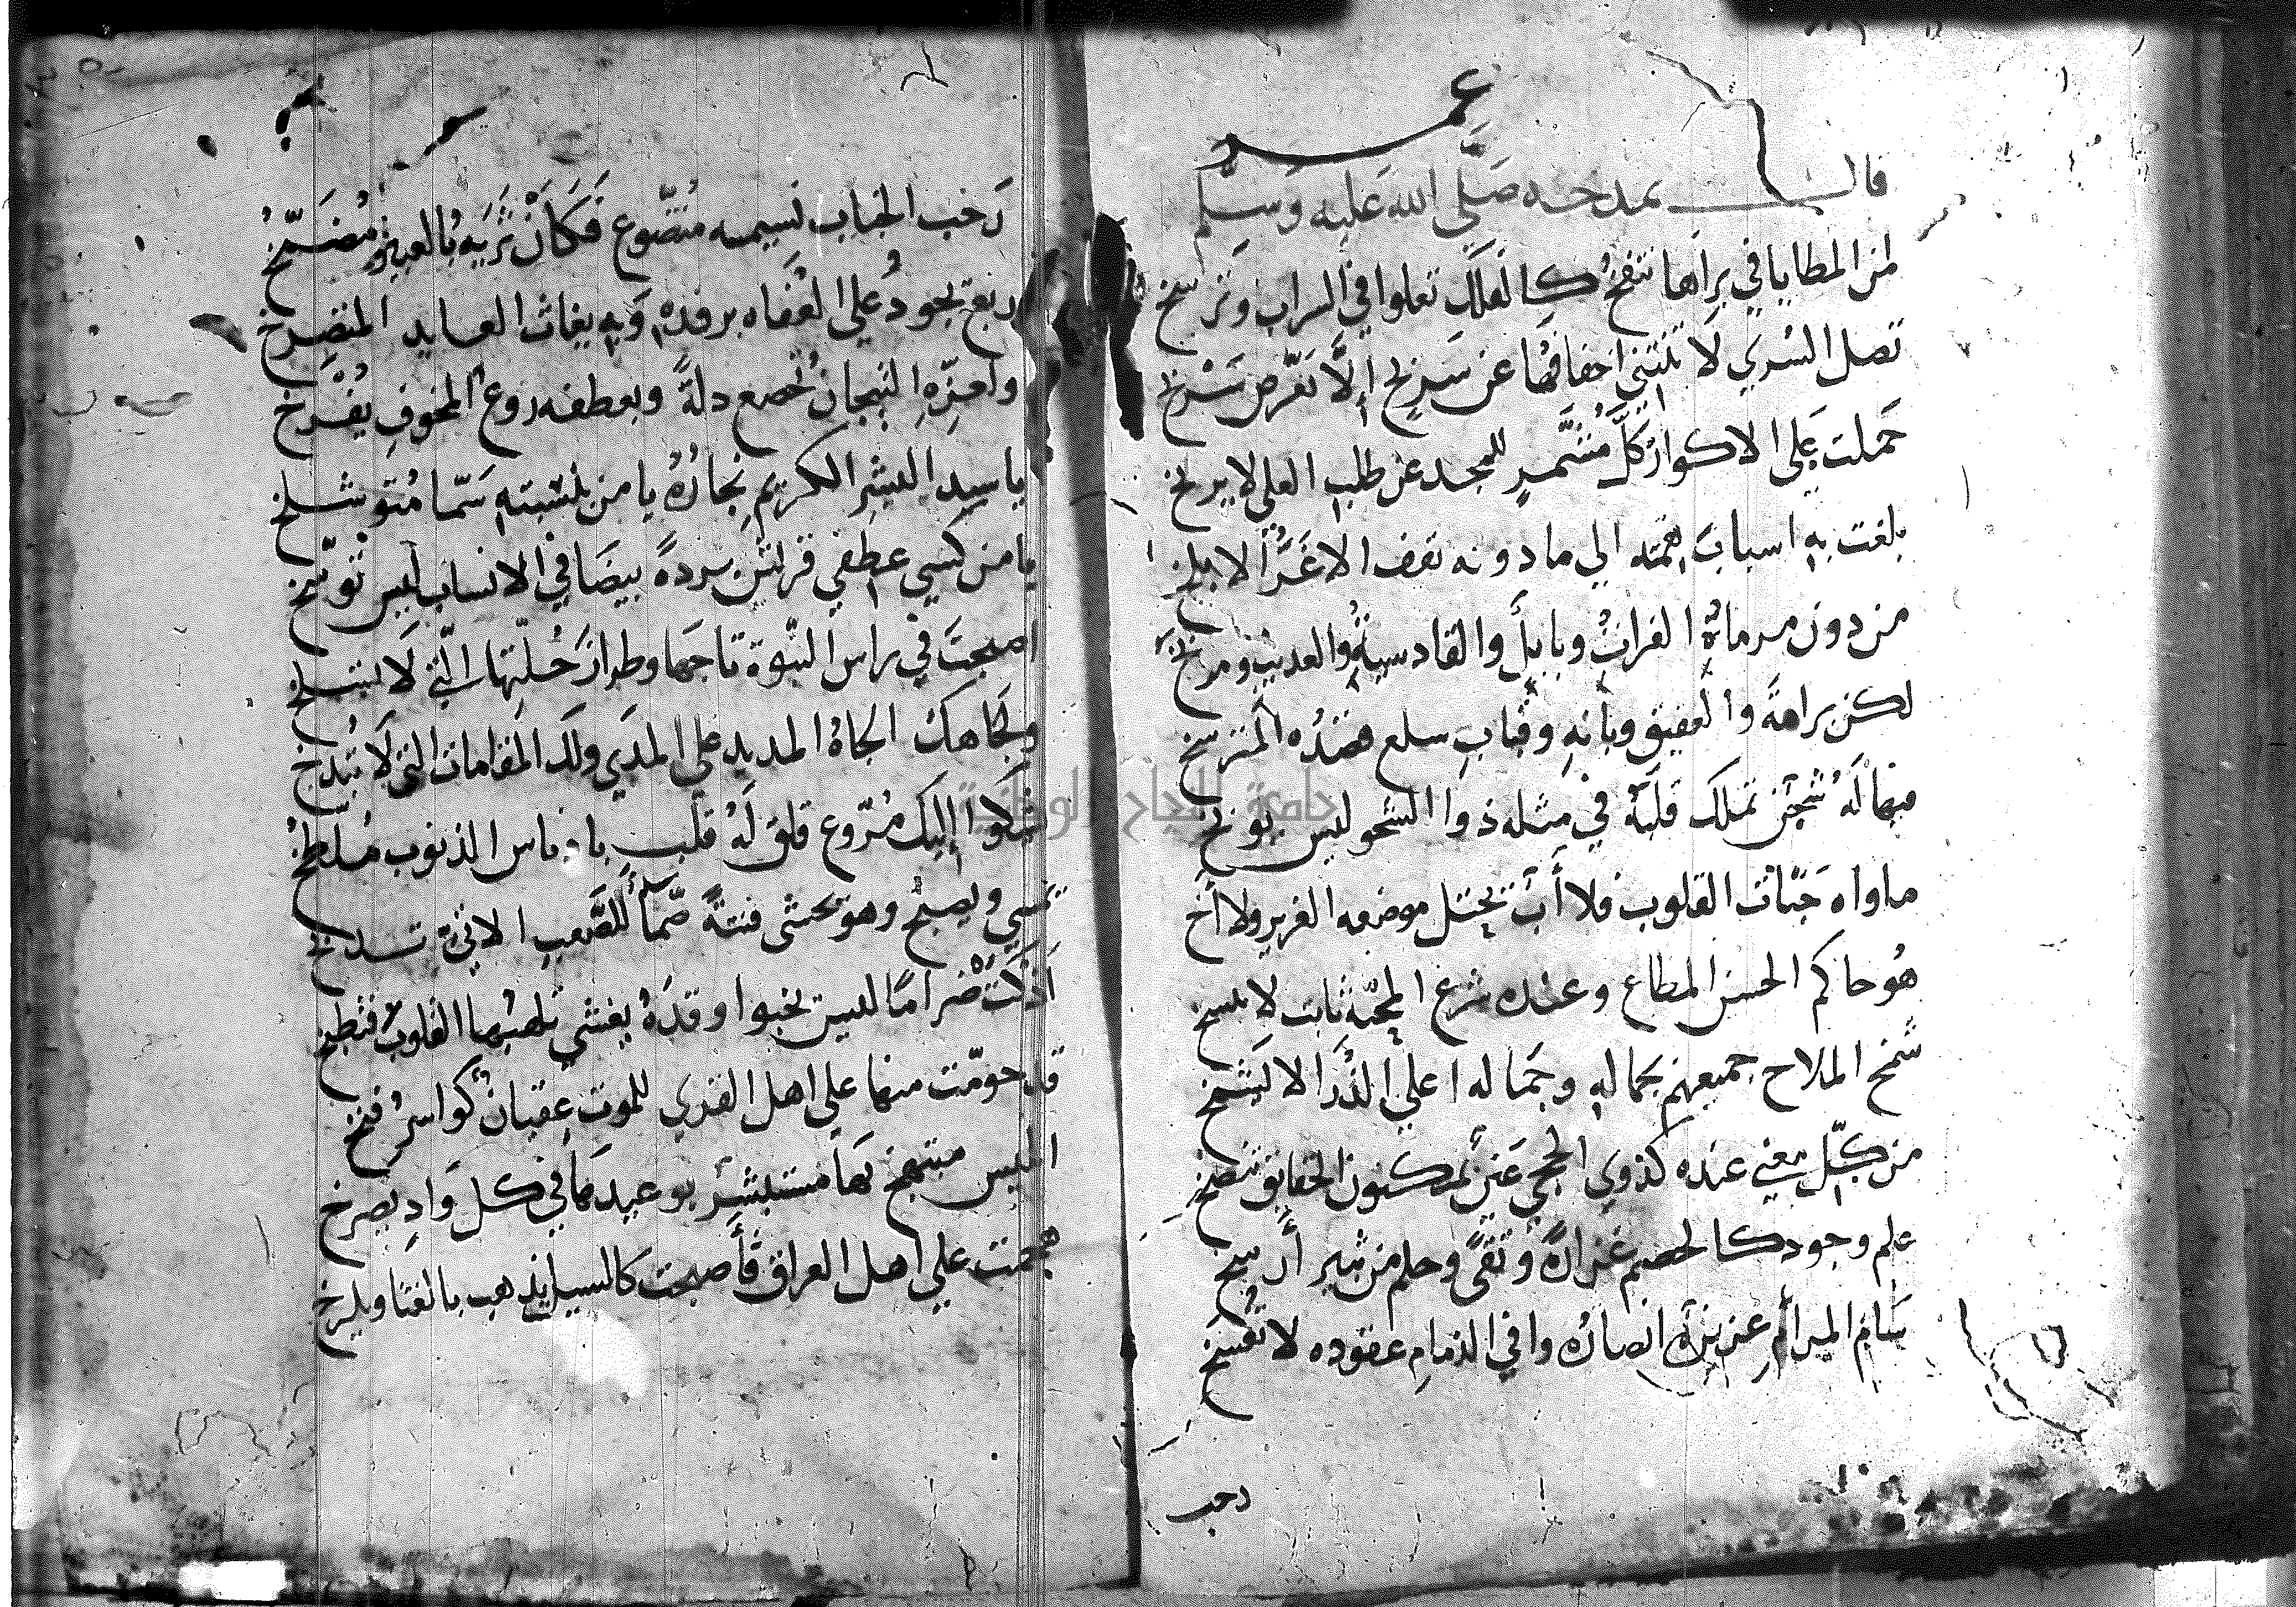 قال يمدحه صلى الله عليه وسلم
لمن المطايا في براها تنفخ كالفلك تعلوا في السراب وترسخ
تصل السري لا تنثني اخفافها عن سربخ الا تعرض سربخ
حملت علي الاكوار كل مشمر للمجد عن طلب العلي لا يربخ
بلغت به اسباب همته الي ما دونه تقف الاغر الابلخ
من دون مرماة الفرات وبابل والقادسية والعذيب و
لكن برامة والعقيق وبانه وقباب سلع قصده المترسخ
فبها له شجن تملك قلبه في مثله ذوا الشجو ليس يوبخ
ماواه جنات القلوب فلا أب يحتل موضعه العزيز ولا أخ
هو حاكم الحسن المطاع وعنده شرع المحبة ثابت لا ينسخ
شمخ الملاح جميعهم بجماله وجماله اعلي الذرا لا يشمخ
من كل معني عنده لذوي الحجي عين بمكنون الحقايق تنضخ
علم وجود كالخضم غزارة وتقى وحلم من ثبير أرسخ
سام المرام عزيزة انصاره وافي الذمام عقوده لا تفسخ
رحب
رحب الجناب نسيمه متضوع فكأن تربه بالعبير مضمخ
ربع يجود علي العفاه برفده وبه يغاث العايد المتصرخ
ولعزه التيجان تخضع دلة وبعطفه روع المخوف يفرخ
يا سيد البشر الكريم نجاره يا من بنسبته سما متوشلخ
يا من كسي عطفي قريش بردة بيضا في الانساب ليس توسخ
اصبحت في راس النبوة تاجها وطراز حلتها التي لا تسلخ
ولجاهك الجاه المديد علي المدي ولك المقامات التي لا تبدخ
شكوا إليك مروع قلق له قلب با الذنوب ملطخ
يمسي ويصبح وهو يخشى فتنة صما للصعب الابي تسلخ
اذكت ضراما لليس تخبوا وقده يغشي تلهبها القلوب فتطبخ
قد حومت منها علي اهل القري للموت عقبان كواسر فتخ
ابليس مبتهج بها مستبشر بوعيدها في كل واد يصرخ
هجمت علي اهل العراق فأصبحت كالسيل يذهب بالغثا ويلخ
جامعة النجاح الوطنية